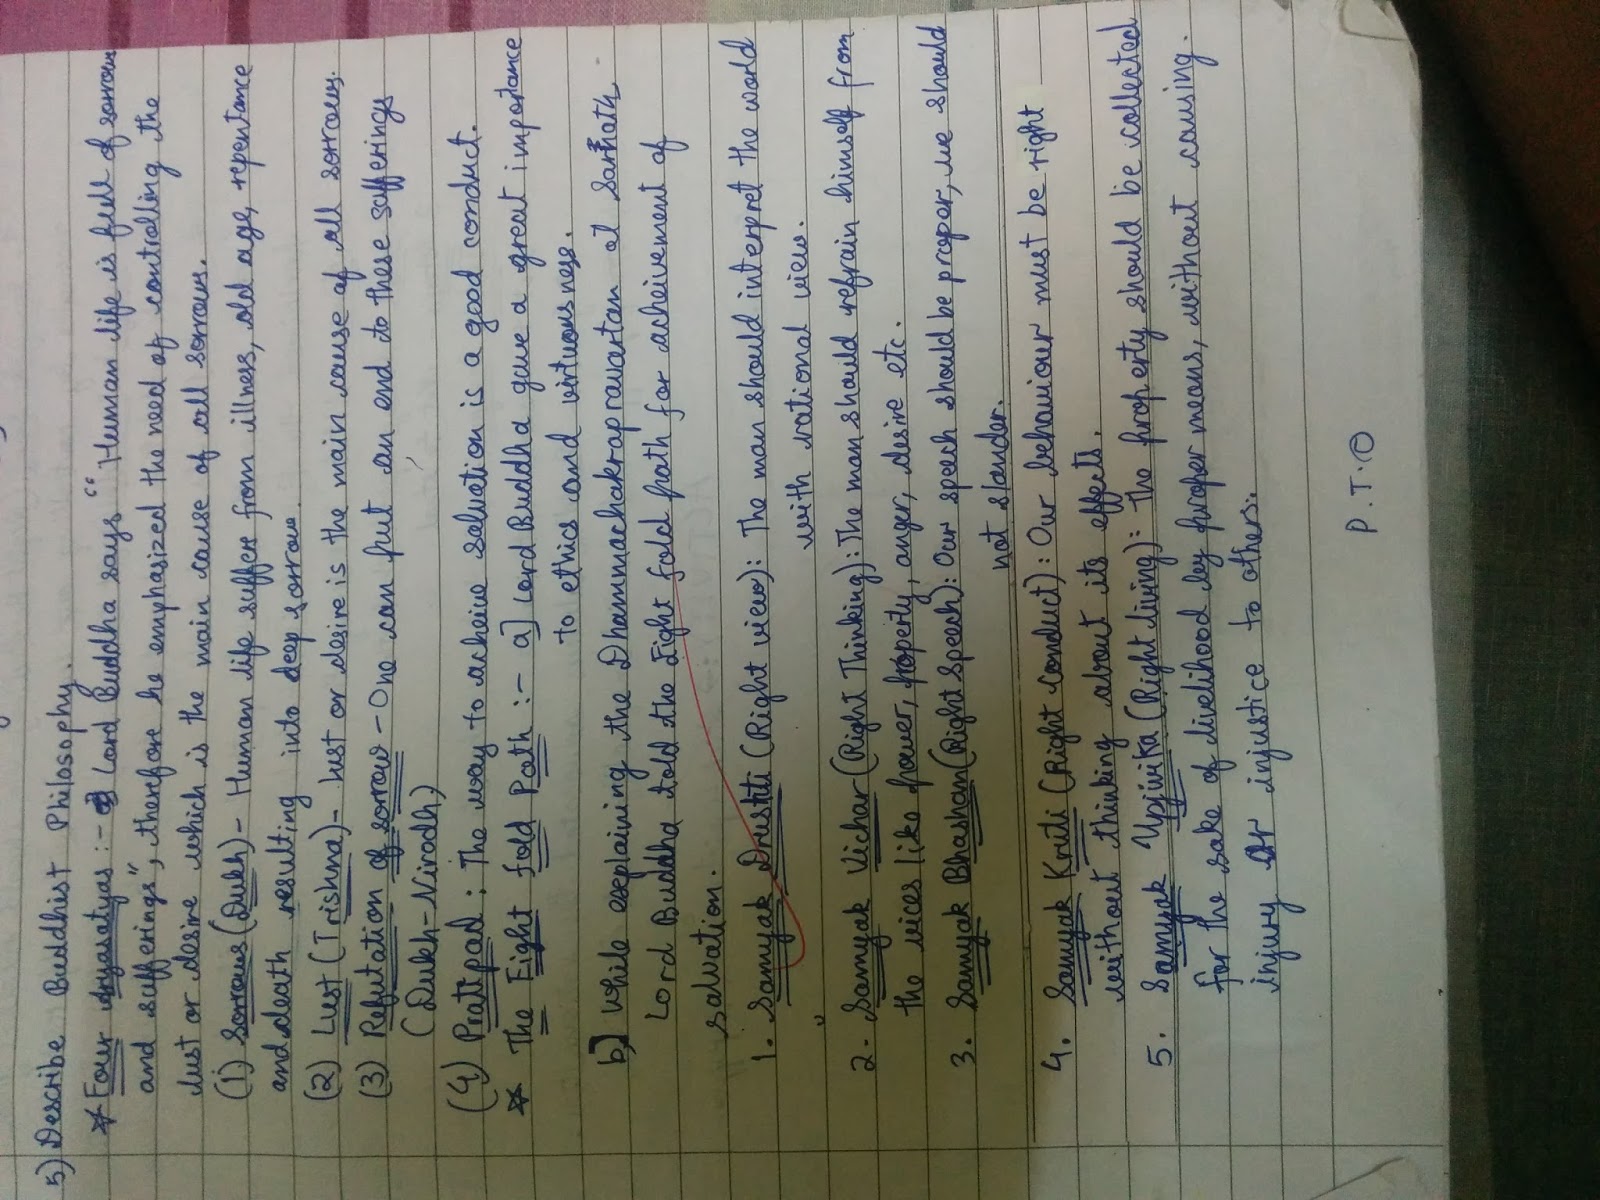 5) Describe Buddhist Philosophy.
* Four aryasatyas :- Lord Buddha says "Human life is full of sorrows
and sufferings", therefore he emphasized the need of controlling the
lust or desire which is the main cause of all sorrows.
(1) Sorrows (Dukh) - Human life suffers from illness, old age, repentance
and death resulting into deep sorrow.
(2) Lust (Trishna) - lust or desire is the main cause of all sorrows.
(3) Refutation of sorrow - One can put an end to these sufferings
(Dukh-Nirodh)
(4) Pratipad : The way to acheive salvation is a good conduct.
* The Eight fold Path :- a] Lord Buddha gave a great importance
to ethics and virtuousness.
b] While explaining the Dhammachakrapravartan at Sarnath,
Lord Buddha told the Eight fold path for acheivement of
salvation.
1. Samyak Drustiti (Right view) : The man should interpret the world
with rational view.
2. Samyak Vichar (Right Thinking) : The man should refrain himself from
the vices like power, property, anger, desire etc.
3. Samyak Bhashan (Right Speach) : Our speech should be proper, we should
not slander.
4. Samyak Kruti (Right conduct) : Our behaviour must be right
without thinking about its effects.
5. Samyak Upjivika (Right living) : The property should be collected
for the sake of livelihood by proper means, without causing
injury or injustice to others.
P.T.O